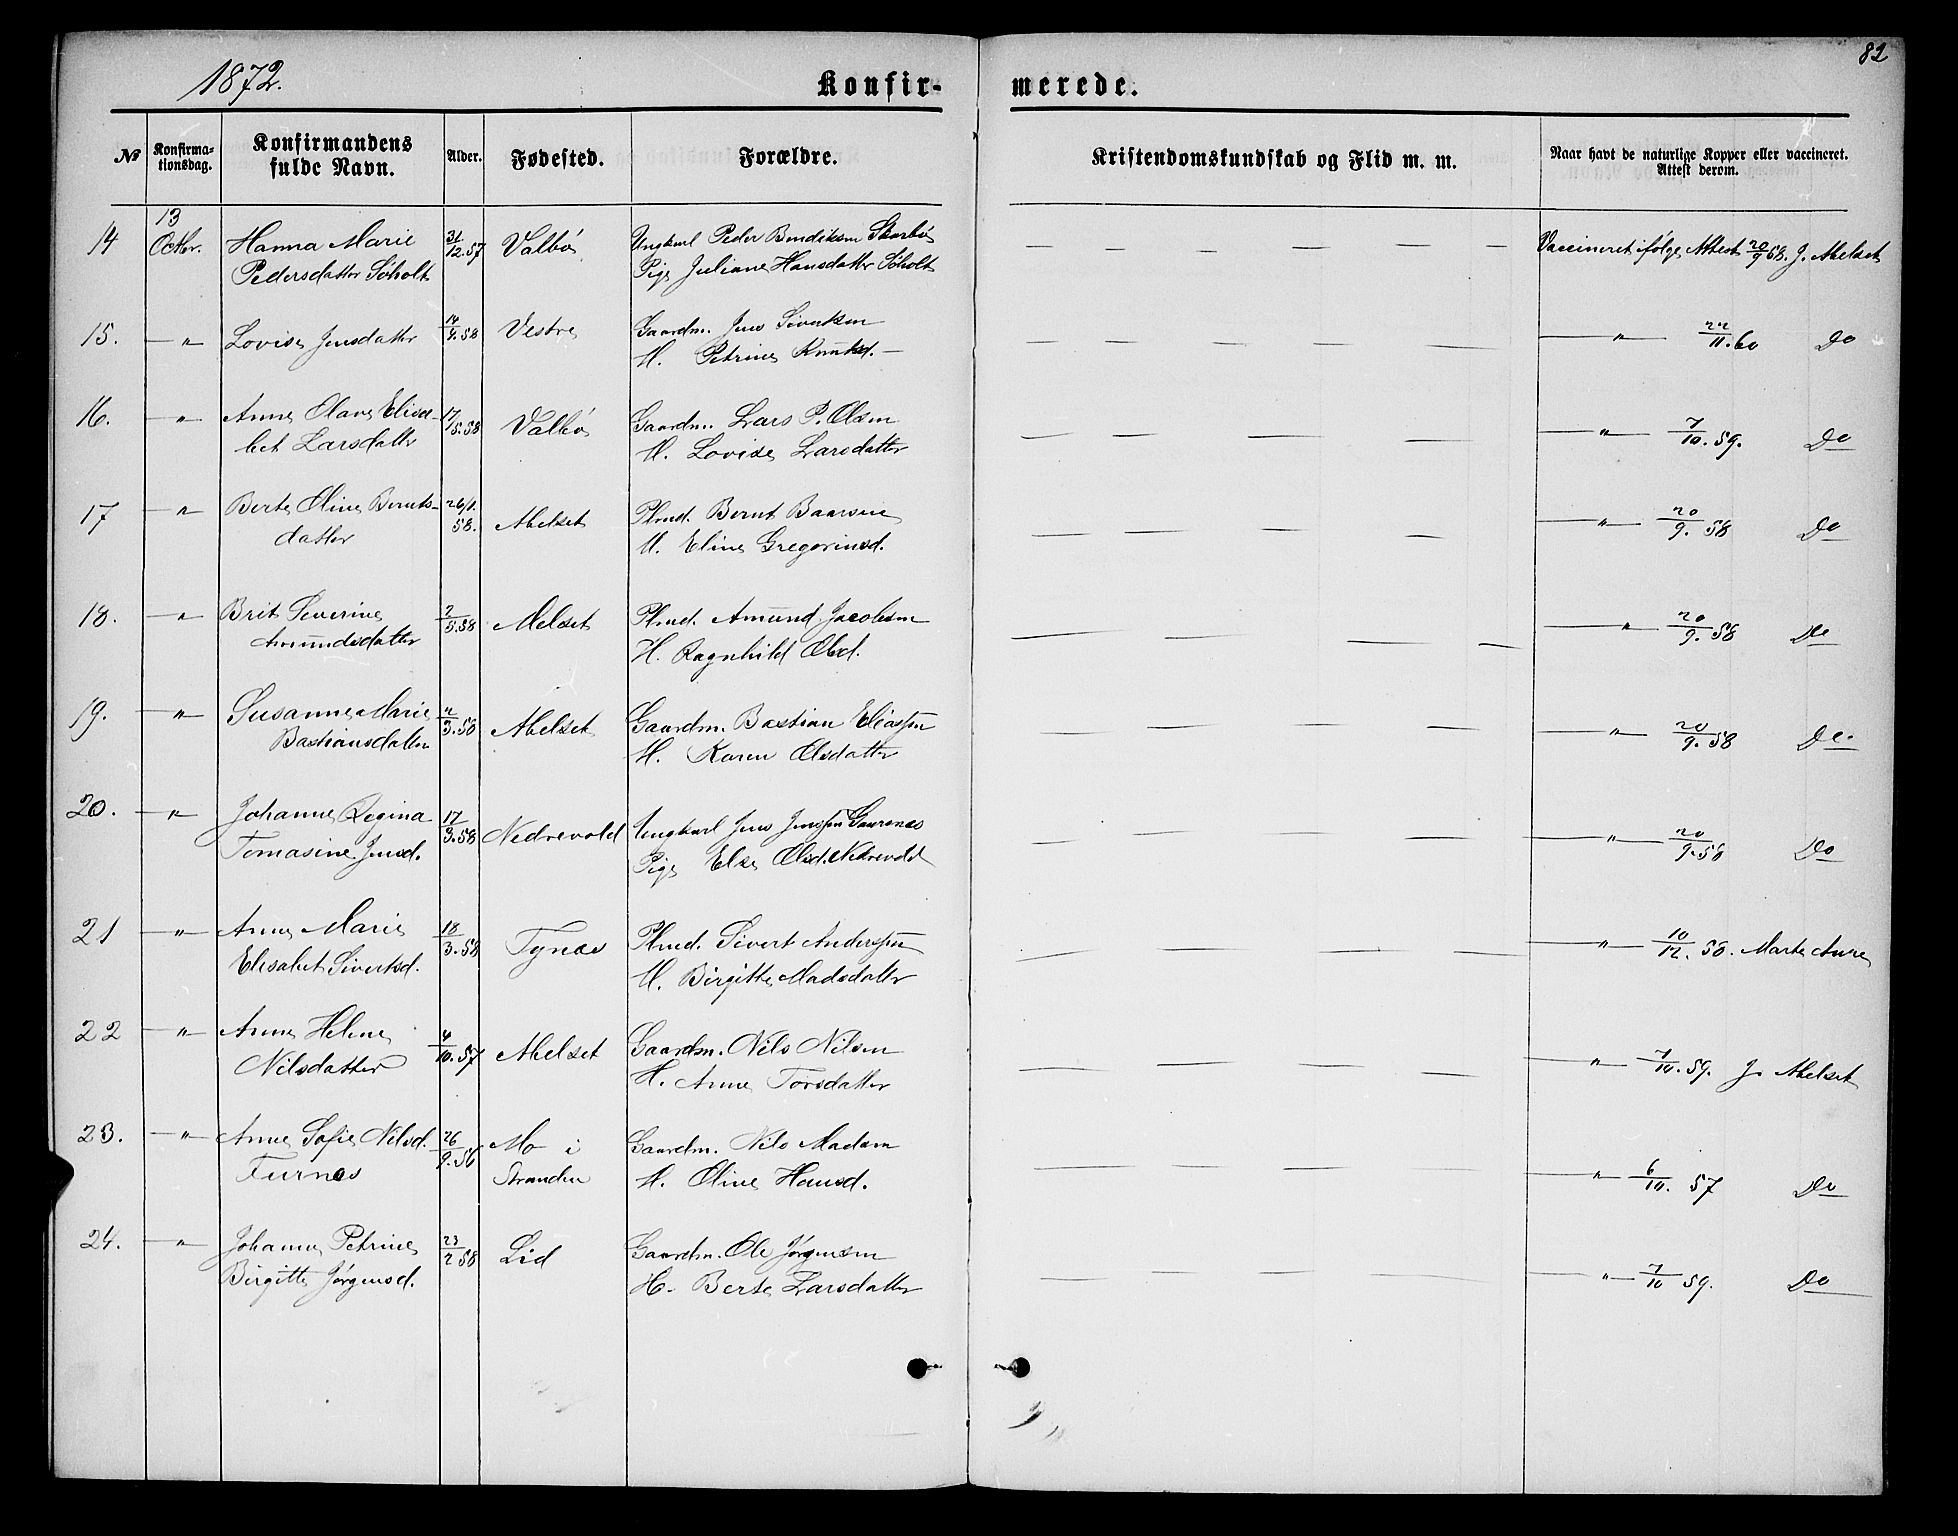 82
1872.
Konfir-
merede.
№
Konfirma-
tionsdag.
Konfirmandens
fulde Navn.
Alder.
Fødested.
Forældre.
Kristendomskundskab og Flid m. m.
Naar havt de naturlige Kopper eller vaccineret.
Attest derom.
14 13 Octbr. Hanna Marie 31/12.57 Valbø Ungkarl Peder Bendiksen Skarbø — — — — — — Vaccineret ifølge Attest 20/9 58. J. Abelset
Pedersdatter Søholt Pige Juliane Hansdatter Søholt
15. — " — Lovise Jensdatter 14/9.58 Vestre Gaardm. Jens Sivertsen — " — 22/11.60 Do
H. Petrine Knutsd. —
16. — " — Anne Olave Elisa- 17/5.58 Valbø Gaardm. Lars P. Olsen — " — 7/10.59. Do
bet Larsdatter H. Lovise Larsdatter
17 — " — Berte Oline Bernts- 26/1.58. Abelset Plmd. Bernt Baarsen — " — 20/9.58 Do
datter H. Eline Gregoriusd.
18. — " — Brit Severine 2/5.58 Abelset Plmd. Amund Jacobsen — " — 20/9.58 Do
Amundsdatter H. Ragnhild Olsd.
19. — " — Susanne Marie 2/3.58 Abelset Gaardm. Bastian Eliassen — " — 20/9.58 Do.
Bastiansdatter H. Karen Olsdatter
20. — " — Johanne Regina 17/3.58 Nedrevold Ungkarl Jens Jenssen — " — 20/9.58 Do
Tomasine Jensd. Pige Else Olsd. Nedrevold
21 — " — Anne Marie 18/3.58 Tynes Plmd. Sivert Anderssen — " — 10/12.58. Marte Aure
Elisabet Sivertsd. H. Birgitte Madsdatter
22 — " — Anne Helene 4/10.57 Abelset Gaardm. Nils Nilsen — " — 7/10.59. J. Abelset
Nilsdatter H. Anne Torsdatter
23. — " — Anne Sofie Nilsd. 26/9.56 Mo i Gaardm. Nils Madsen — " — 6/10.57 Do
Furnes Stranden H. Oline Hansd.
24. — " — Johanne Petrine 23/2 58 Lid Gaardm. Ole Jørgensen — " — 7/10 59. Do
Birgitte Jørgensd. H. Berte Larsdatter